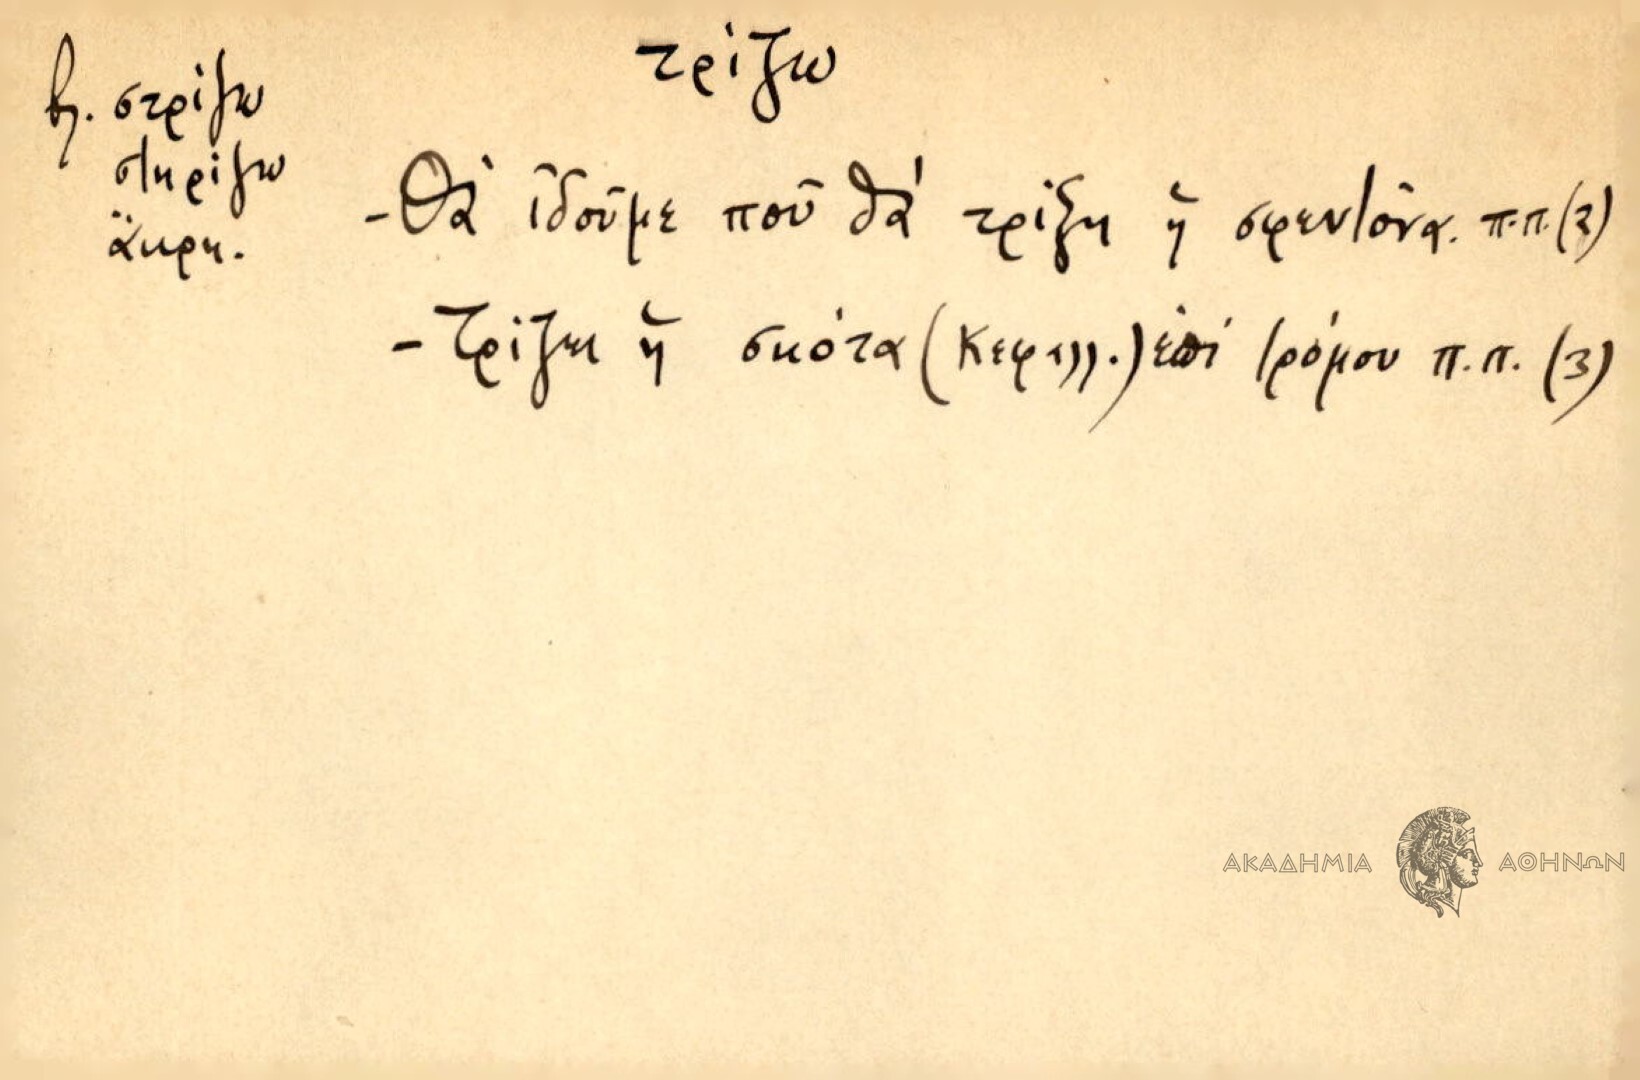 τρίζω
βλ. στρίζω
στηρίζω
ἄκρη.
- Θὰ ἰδοῦμε ποῦ θά τρίξῃ ἡ σφεντόνα. π.π. (2)
- Τρίζει ἡ σκότα (Κεφαλλ.) ἐπί δρόμου π.π. (3)
ΑΚΑΔΗΜΙΑ ΑΘΗΝΩΝ